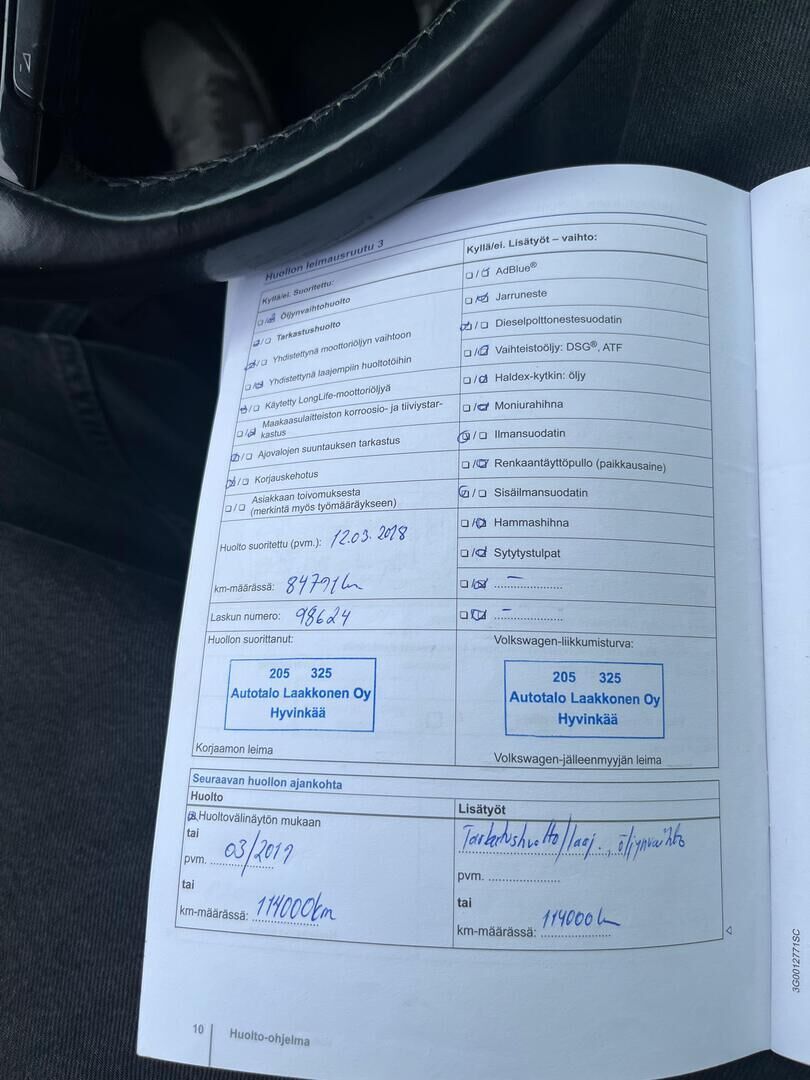 Huollon leimausruutu 3
Kyllä/ei. Suoritettu:
☐/☑ Öljynvaihtohuolto
☑/☐ Tarkastushuolto
☑/☐ Yhdistettynä moottoriöljyn vaihtoon
☐/☑ Yhdistettynä laajempiin huoltotöihin
☑/☐ Käytetty LongLife-moottoriöljyä
☐/☑ Maakaasulaitteiston korroosio- ja tiiviystar-
kastus
☑/☐ Ajovalojen suuntauksen tarkastus
☑/☐ Korjauskehotus
☐/☐ Asiakkaan toivomuksesta
(merkintä myös työmääräykseen)
Huolto suoritettu (pvm.): 12.03.2018
km-määrässä: 84791km
Laskun numero: 98624
Huollon suorittanut:
205 325
Autotalo Laakkonen Oy
Hyvinkää
Korjaamon leima
Kyllä/ei. Lisätyöt – vaihto:
☐/☑ AdBlue®
☐/☑ Jarruneste
☑/☐ Dieselpolttonestesuodatin
☐/☑ Vaihteistoöljy: DSG®, ATF
☐/☑ Haldex-kytkin: öljy
☐/☑ Moniurahihna
☑/☐ Ilmansuodatin
☐/☑ Renkaantäyttöpullo (paikkausaine)
☑/☐ Sisäilmansuodatin
☐/☑ Hammashihna
☐/☑ Sytytystulpat
☐/☑ –
☐/☑ –
Volkswagen-liikkumisturva:
205 325
Autotalo Laakkonen Oy
Hyvinkää
Volkswagen-jälleenmyyjän leima
Seuraavan huollon ajankohta
Huolto
☑ Huoltovälinäytön mukaan
tai
pvm. 03/2019
tai
km-määrässä: 114000km
Lisätyöt
Tarkastushuolto/laaj., öljynvaihto
pvm. ....................
tai
km-määrässä: 114000km
10 Huolto-ohjelma
3G0012771SC